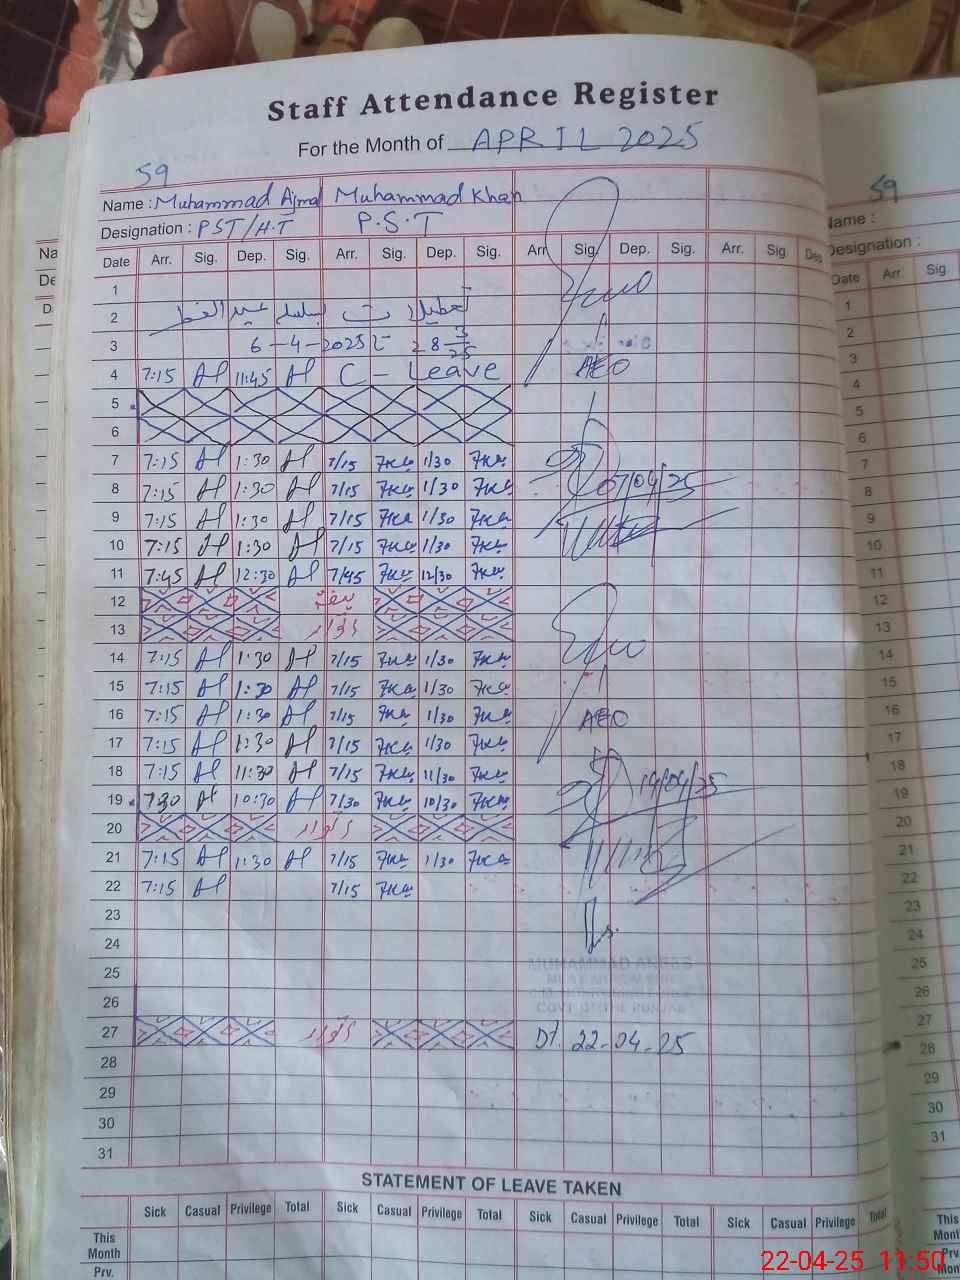 Staff Attendance Register
For the Month of APRIL 2025
59
Name : Muhammad Ajmal Muhammad Khan
Designation : PST/H.T P.S.T
Date Arr. Sig. Dep. Sig. Arr. Sig. Dep. Sig. Arr. Sig. Dep. Sig. Arr. Sig. Dep.
1
2 تعطیلات بسلسلہ عید الفطر
3 28-3/25 تا 6-4-2025
4 7:15 11:45 C-Leave
AEO
5
6
7 7:15 1:30 7/15 1/30
8 7:15 1:30 7/15 1/30
07/04/25
9 7:15 1:30 7/15 1/30
10 7:15 1:30 7/15 1/30
11 7:45 12:30 7/45 12/30
12 ہفتہ
13 اتوار
14 7:15 1:30 7/15 1/30
15 7:15 1:30 7/15 1/30
16 7:15 1:30 7/15 1/30
AEO
17 7:15 1:30 7/15 1/30
18 7:15 11:30 7/15 11/30
19/04/25
19 7:30 10:30 7/30 10/30
20 اتوار
21 7:15 1:30 7/15 1/30
22 7:15 7/15
23
24
MUHAMMAD ANEES
25
26
GOVT OF THE PUNJAB
27 اتوار Dt. 22-04-25
28
29
30
31
STATEMENT OF LEAVE TAKEN
Sick Casual Privilege Total Sick Casual Privilege Total Sick Casual Privilege Total Sick Casual Privilege Total
This Month
Prv.
59
Name :
Designation :
Date Arr. Sig.
1
2
3
4
5
6
7
8
9
10
11
12
13
14
15
16
17
18
19
20
21
22
23
24
25
26
27
28
29
30
31
This
Prv.
22-04-25 11:50